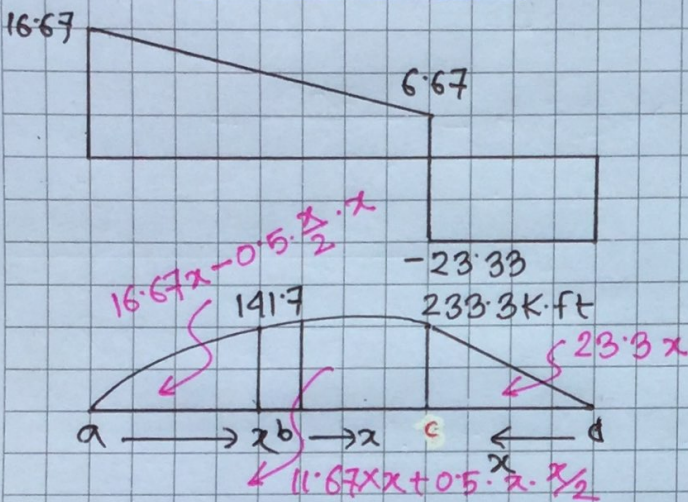 16.67
6.67
-23.33
16.67x-0.5.x/2.x
141.7
233.3K.ft
23.3x
a → x b → x c ← x d
11.67xx+0.5.x.x/2